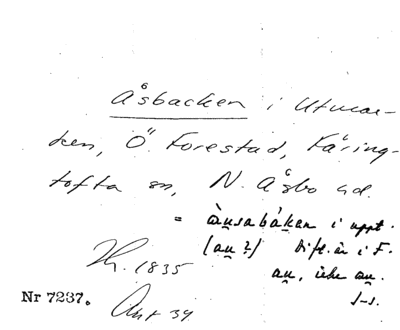 Åsbacken i Utmar-
ken, Ö. Forestad, Färing-
tofta sn, N. Åsbo hd.
= àu̲sabáka̲n i uppt.
(au̲ ?) Dift. är i F.
au̲, icke au̲.
J-s.
Hr. 1835
Ant 34
Nr 7237.